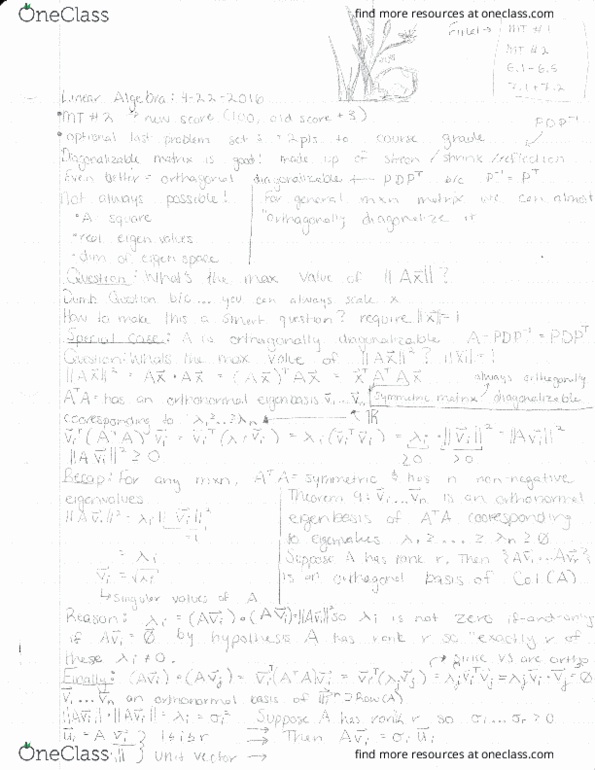 OneClass
find more resources at oneclass.com
MT # 1
MT # 2
6.1-6.5
7.1+7.2
Linear Algebra: 4-22-2016
•MT #2 → new score (100, old score + 3)
PDP⁻¹
•optional last problem set: +2pts to course grade
Diagonalizable matrix is good! made up of /shrink/reflection
Even better = orthogonal diagonalizable ← PDPᵀ b/c P⁻¹ = Pᵀ
Not always possible!
• A square
• real eigen values
• dim of eigen space
For general mxn matrix we can almost
"orthogonally diagonalize it
Question: What's the max value of ||Ax⃗||?
Dumb Question b/c... you can always scale x
How to make this a smart question? require ||x⃗||=1
Special Case: A is orthogonally diagonalizable A=PDP⁻¹=PDPᵀ
Question: Whats the max value of ||Ax⃗||²? ||x⃗||=1
||Ax⃗||² = Ax⃗ • Ax⃗ = (Ax⃗)ᵀ Ax⃗ = x⃗ᵀAᵀAx⃗ always orthogonally
AᵀA = has an orthonormal eigenbasis v⃗₁...v⃗ₙ symmetric matrix diagonalizable
corresponding to λ₁ ≥...≥λₙ ℝ
v⃗ᵢᵀ(AᵀA)v⃗ᵢ = v⃗ᵢᵀ(λᵢv⃗ᵢ) = λᵢ(v⃗ᵢᵀv⃗ᵢ) = λᵢ • ||v⃗ᵢ||² = ||Av⃗ᵢ||²
||Av⃗ᵢ||² ≥ 0 ≥0 >0
Recap: For any mxn, AᵀA= symmetric & has n non-negative
eigenvalues
||Av⃗ᵢ||² = λᵢ||v⃗ᵢ||²
=1
= λᵢ
= √λᵢ
↳ singular values of A
Theorem 9: v⃗₁...v⃗ₙ is an orthonormal
eigenbasis of AᵀA corresponding
to eigenvalues λ₁ ≥... ≥ λₙ ≥ 0
Suppose A has rank r. Then {Av⃗₁...Av⃗ᵣ}
is an orthogonal basis of Col(A)
Reason: λᵢ = (Av⃗ᵢ)•(Av⃗ᵢ)=||Av⃗ᵢ||² so λᵢ is not zero if-and-only
if Av⃗ᵢ = 0⃗ by hypothesis A has rank r so "exactly r of
these λᵢ ≠ 0.
since vs are ortho
Finally: (Av⃗ᵢ)•(Av⃗ⱼ) = v⃗ᵢᵀ(AᵀA)v⃗ⱼ = v⃗ᵢᵀ(λⱼv⃗ⱼ) = λⱼv⃗ᵢᵀv⃗ⱼ = λⱼv⃗ᵢ•v⃗ⱼ = 0
v⃗₁...v⃗ₙ an orthonormal basis of Row(A)
||Av⃗ᵢ|| • ||Av⃗ᵢ|| = λᵢ = σᵢ² Suppose A has rank r so σ₁...σᵣ > 0
u⃗ᵢ = Av⃗ᵢ } 1≤i≤r → Then Av⃗ᵢ = σᵢu⃗ᵢ
} unit vector →
OneClass
find more resources at oneclass.com